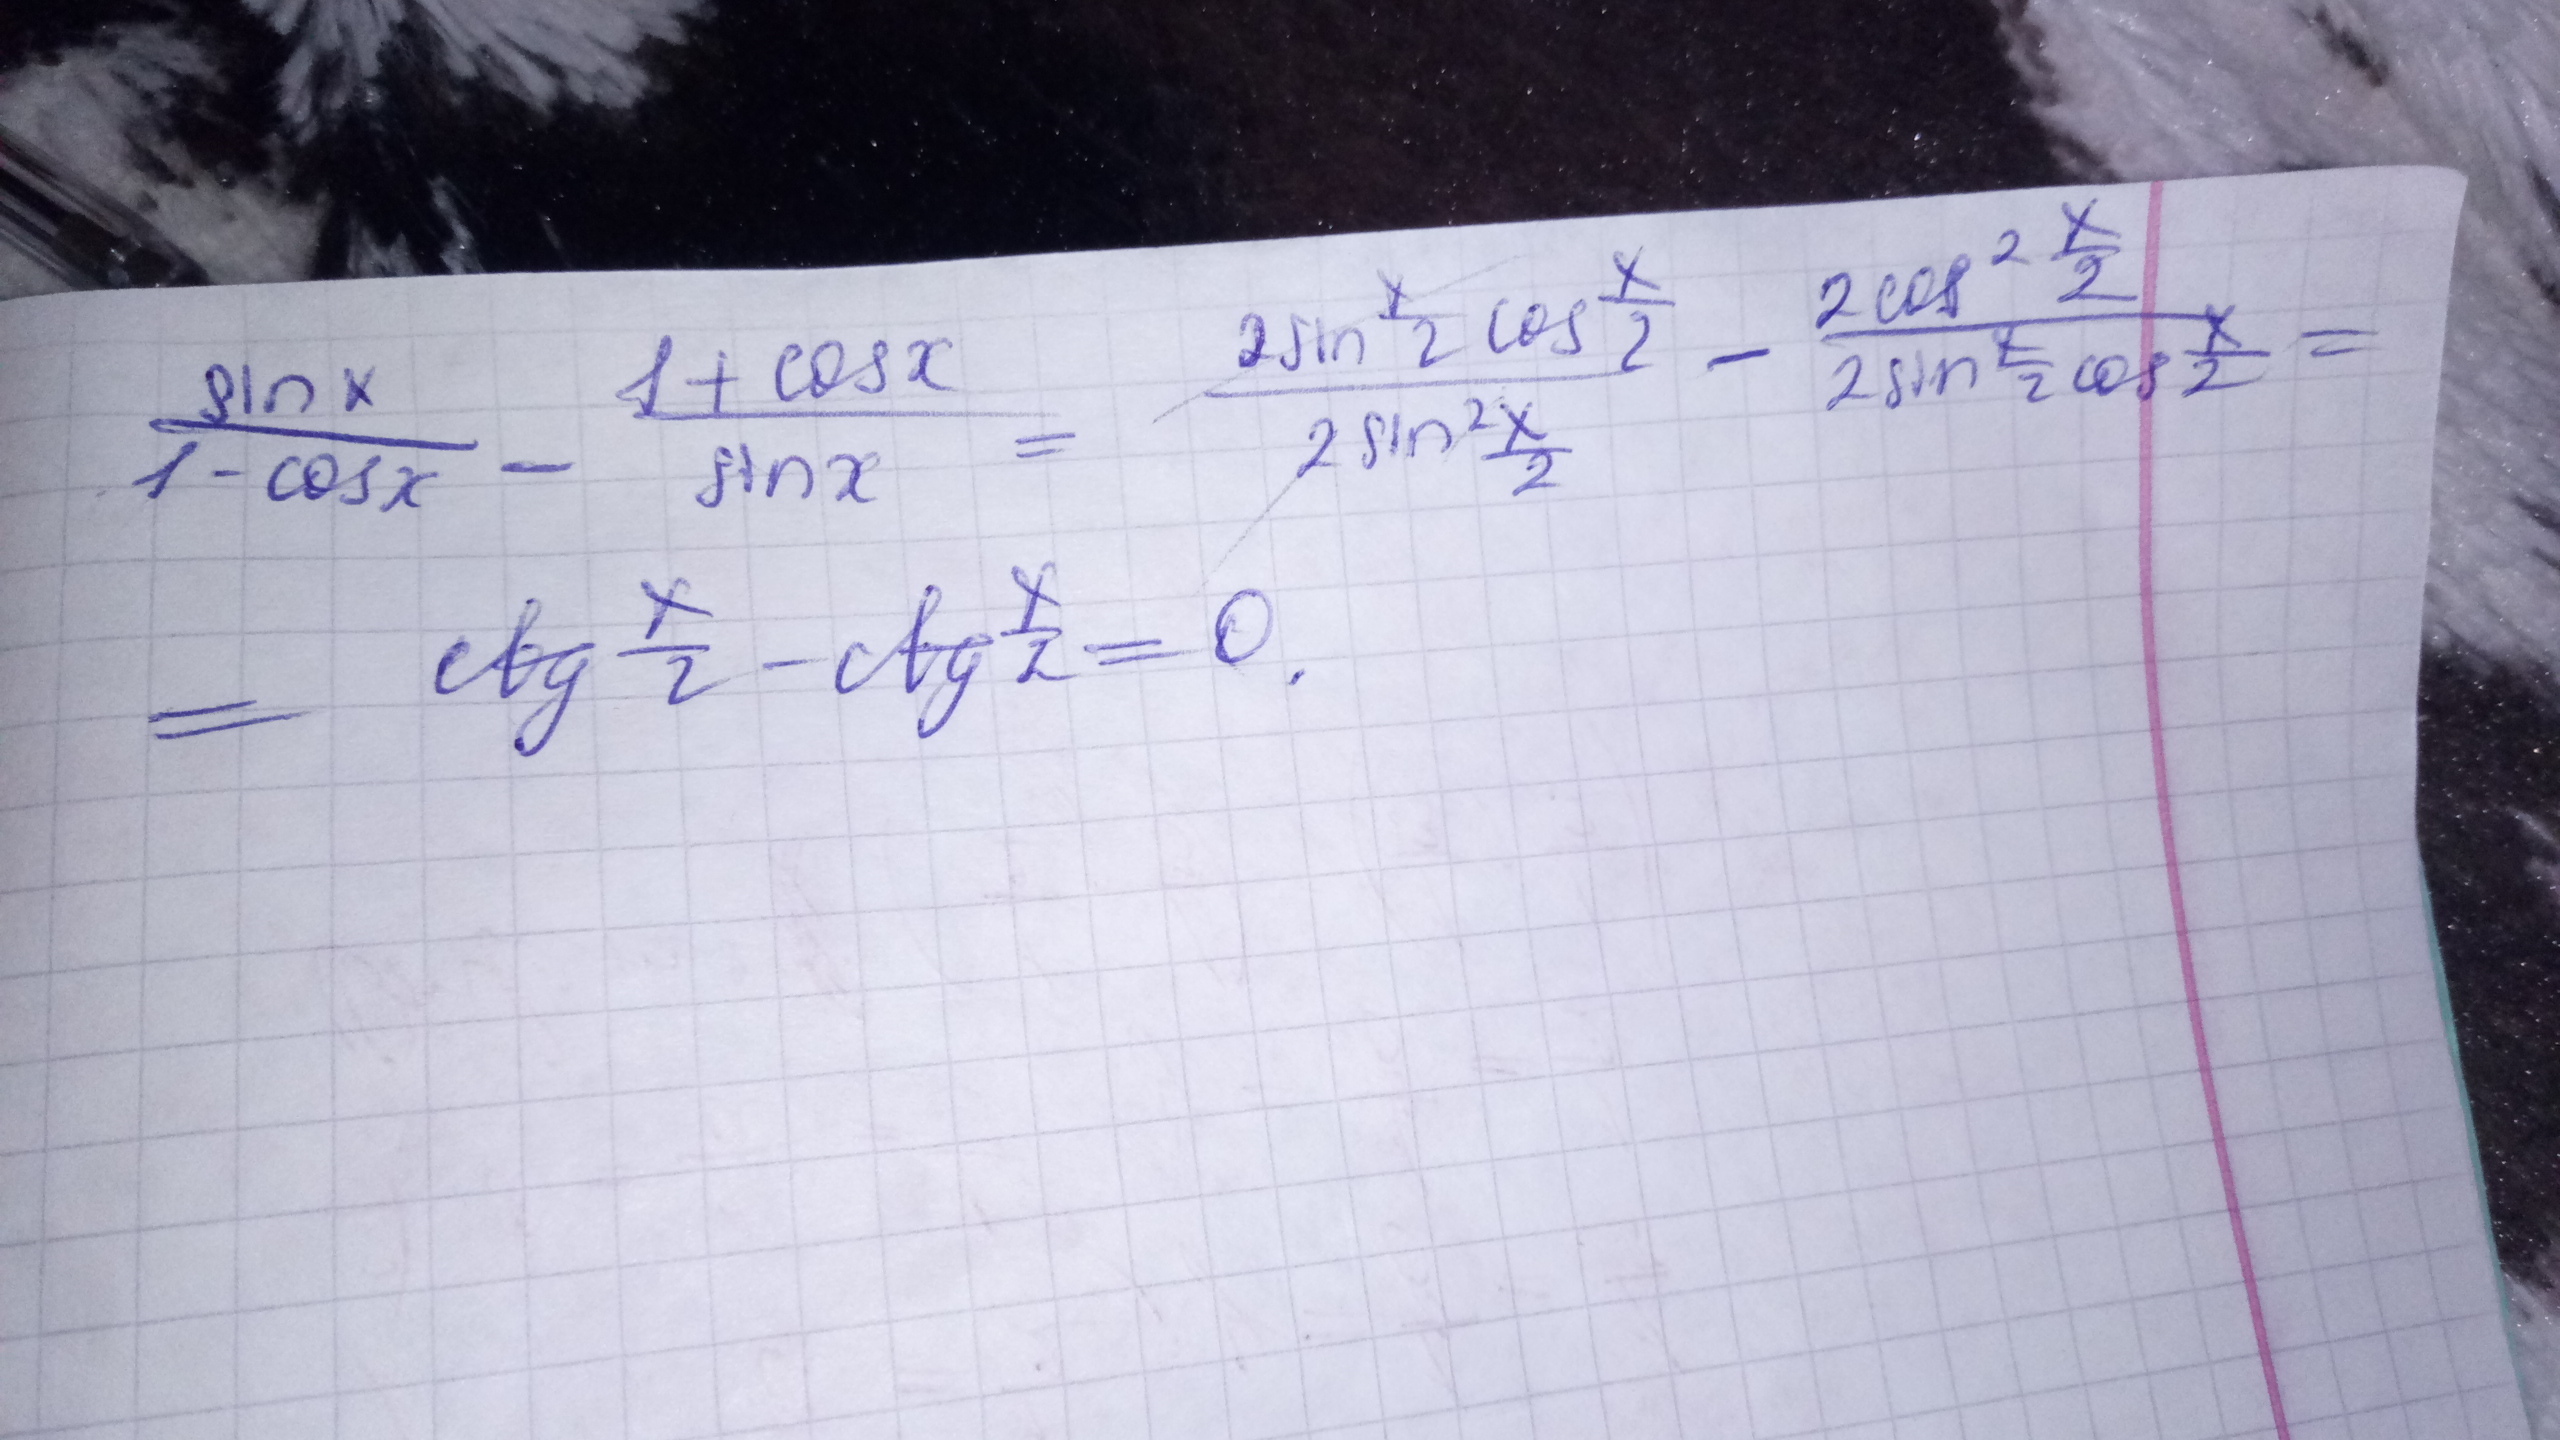 sin x / (1 - cos x) - (1 + cos x) / sin x = (2 sin x/2 cos x/2) / (2 sin² x/2) - (2 cos² x/2) / (2 sin x/2 cos x/2) =
= ctg x/2 - ctg x/2 = 0.